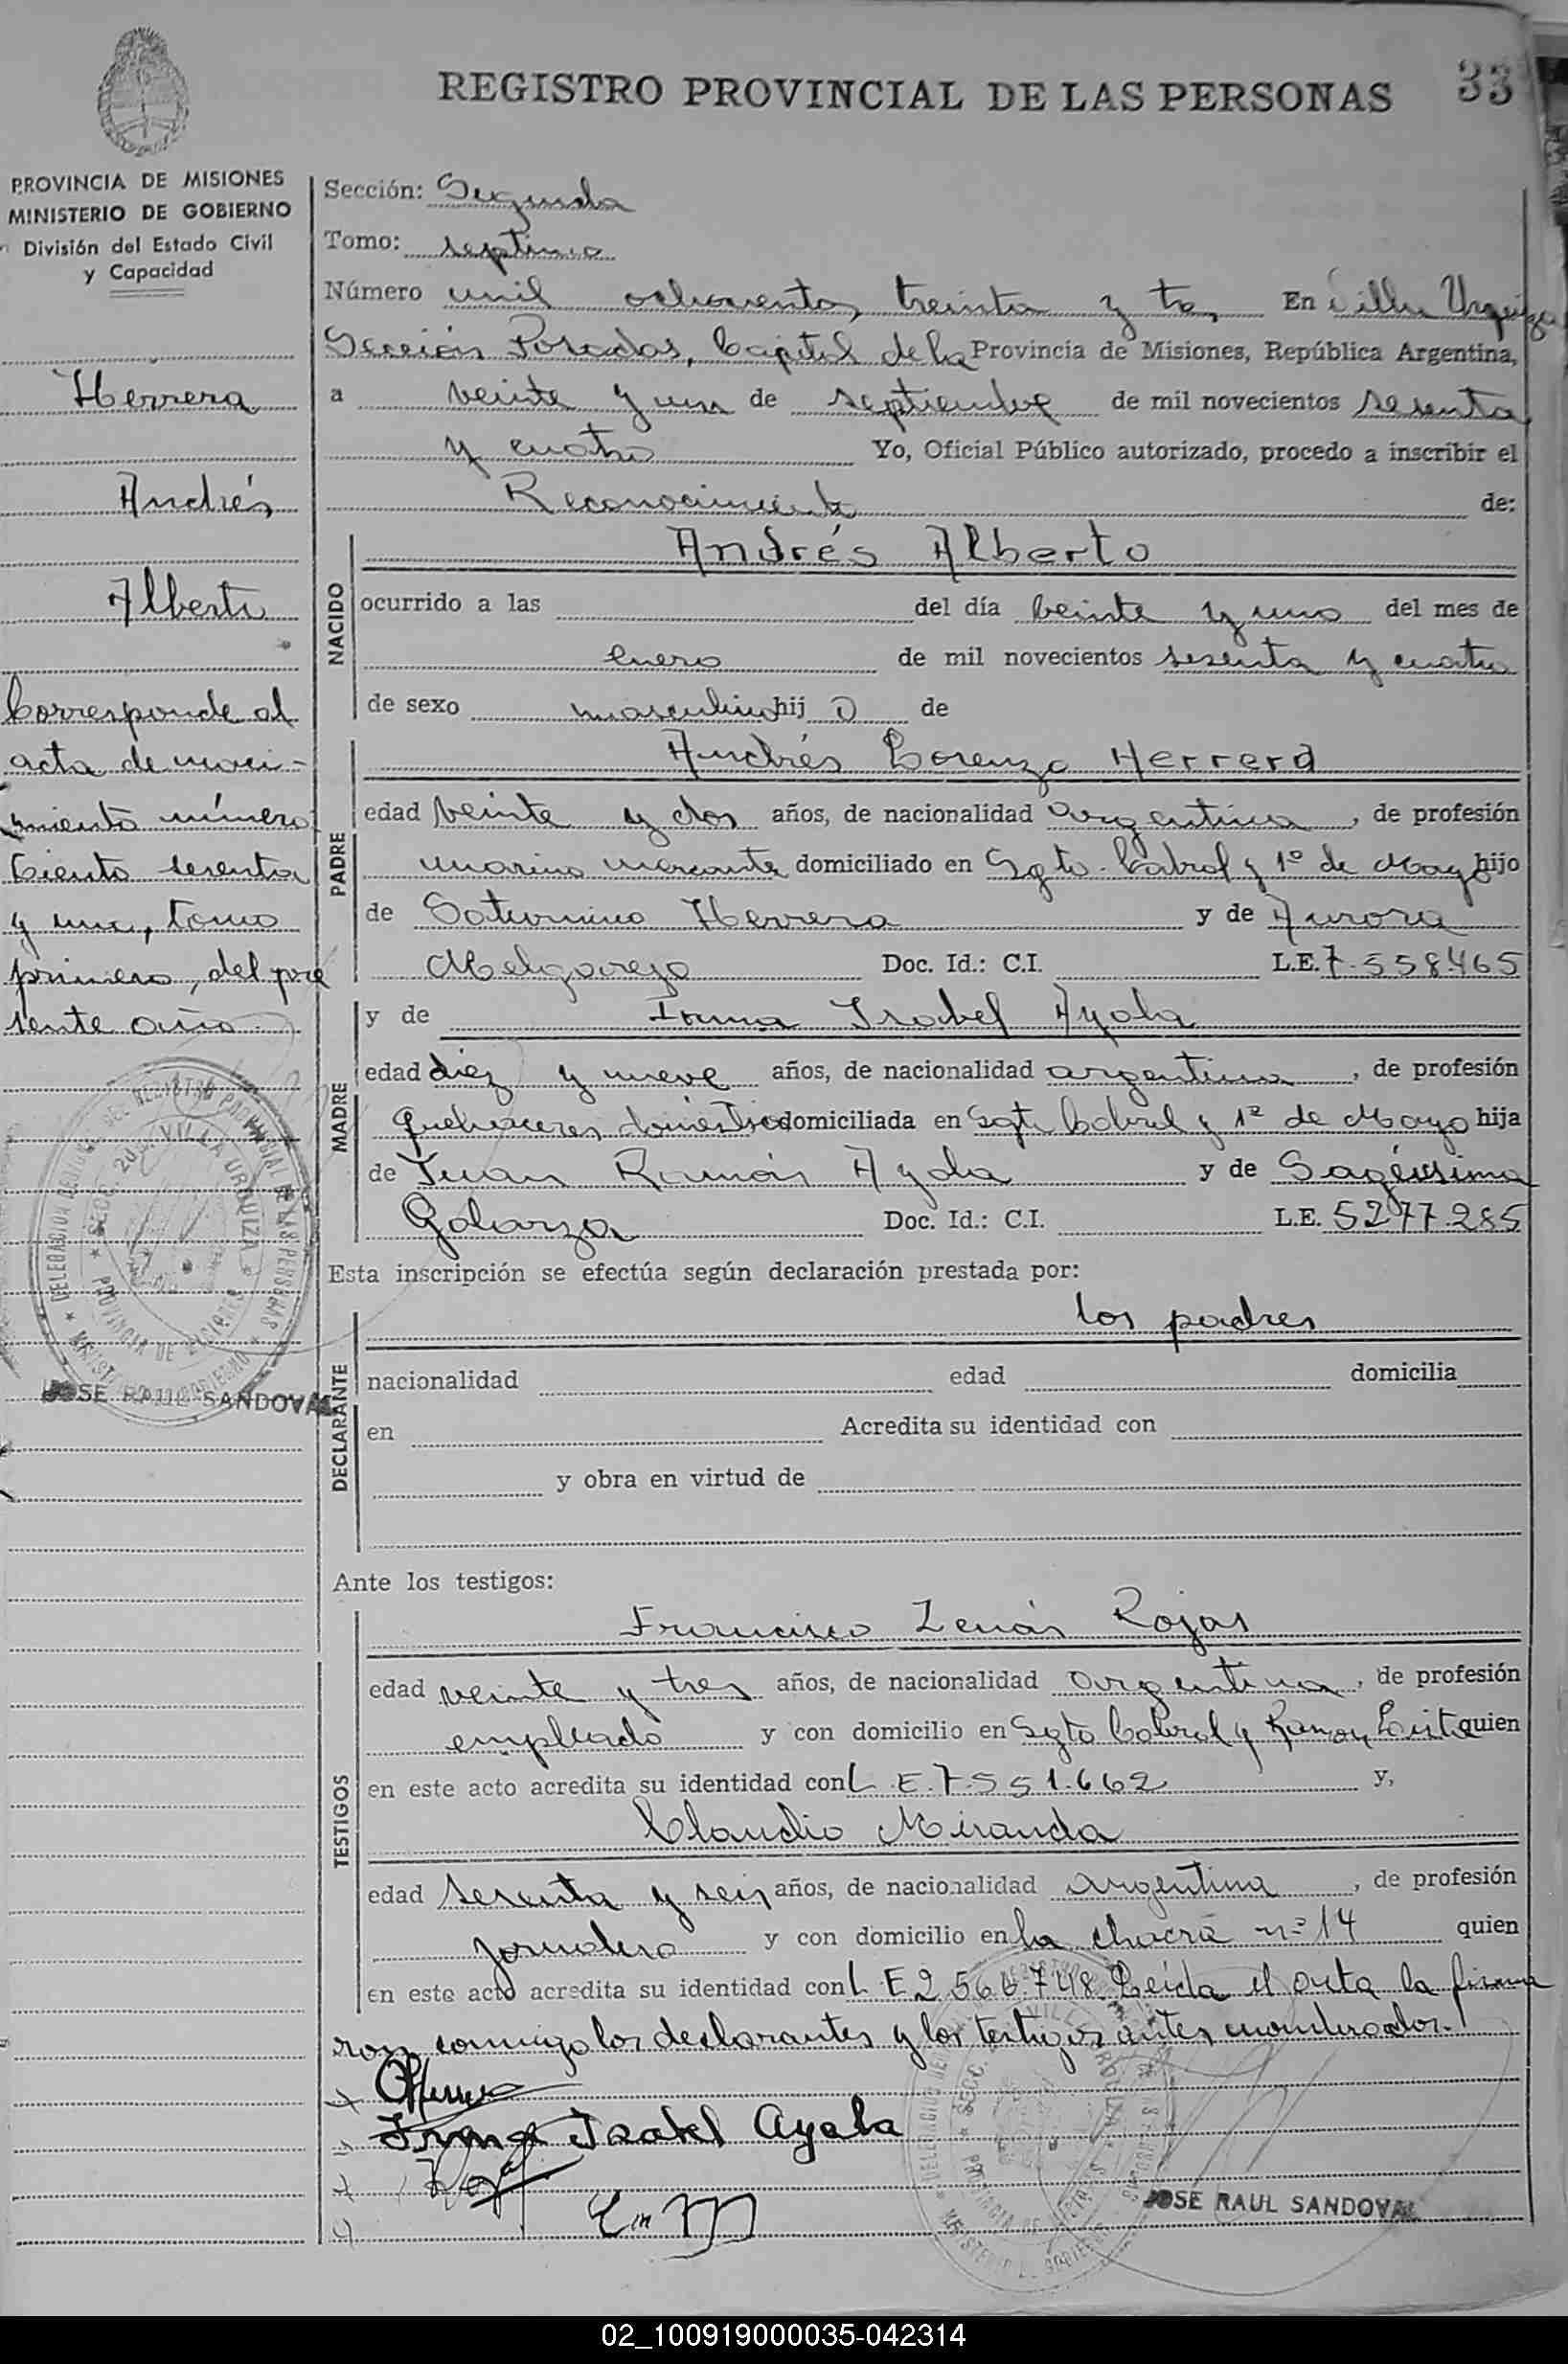 REGISTRO PROVINCIAL DE LAS PERSONAS
33
PROVINCIA DE MISIONES
MINISTERIO DE GOBIERNO
División del Estado Civil
y Capacidad
Herrera
Andrés
Alberto
Corresponde al
acta de naci-
miento número
Ciento sesenta
y uno, tomo
primero, del pre
sente año.
JOSE RAUL SANDOVAL
Sección: Segunda
Tomo: septimo
Número mil treinta y En Villa Urquiza
Sección Posadas, Capital de la Provincia de Misiones, República Argentina,
a veinte y uno de septiembre de mil novecientos sesenta
y cuatro Yo, Oficial Público autorizado, procedo a inscribir el
Reconocimiento de:
NACIDO
Andrés Alberto
ocurrido a las del día veinte y uno del mes de
Enero de mil novecientos sesenta y cuatro
de sexo masculino hij o de
PADRE
Andrés Lorenzo Herrera
edad veinte y dos años, de nacionalidad argentina, de profesión
marino mercante domiciliado en Sgto. Cabral y 1º de Mayo hijo
de Saturnino Herrera y de Aurora
Melgarejo Doc. Id.: C.I. L.E. 7.558.465
MADRE
y de Irma Isabel Ayala
edad diez y nueve años, de nacionalidad argentina, de profesión
quehaceres domésticos domiciliada en Sgto Cabral y 1º de Mayo hija
de Juan Ramón Ayala y de
Galarza Doc. Id.: C.I. L.E. 5277.285
Esta inscripción se efectúa según declaración prestada por:
DECLARANTE
los padres
nacionalidad edad domicilia
en Acredita su identidad con
y obra en virtud de
Ante los testigos:
TESTIGOS
Francisco Zenón Rojas
edad veinte y tres años, de nacionalidad argentina, de profesión
empleado y con domicilio en Sgto Cabral y Ramon quien
en este acto acredita su identidad con L.E. 7.551.662 y,
Claudio Miranda
edad sesenta y seis años, de nacionalidad argentina, de profesión
jornalero y con domicilio en la chacra nº 14 quien
en este acto acredita su identidad con L E 2.560.748. Leida el acta la firma
ron conmigo los declarantes y los testigos antes nombrados.
Irma Isabel Ayala
JOSE RAUL SANDOVAL
02_100919000035-042314